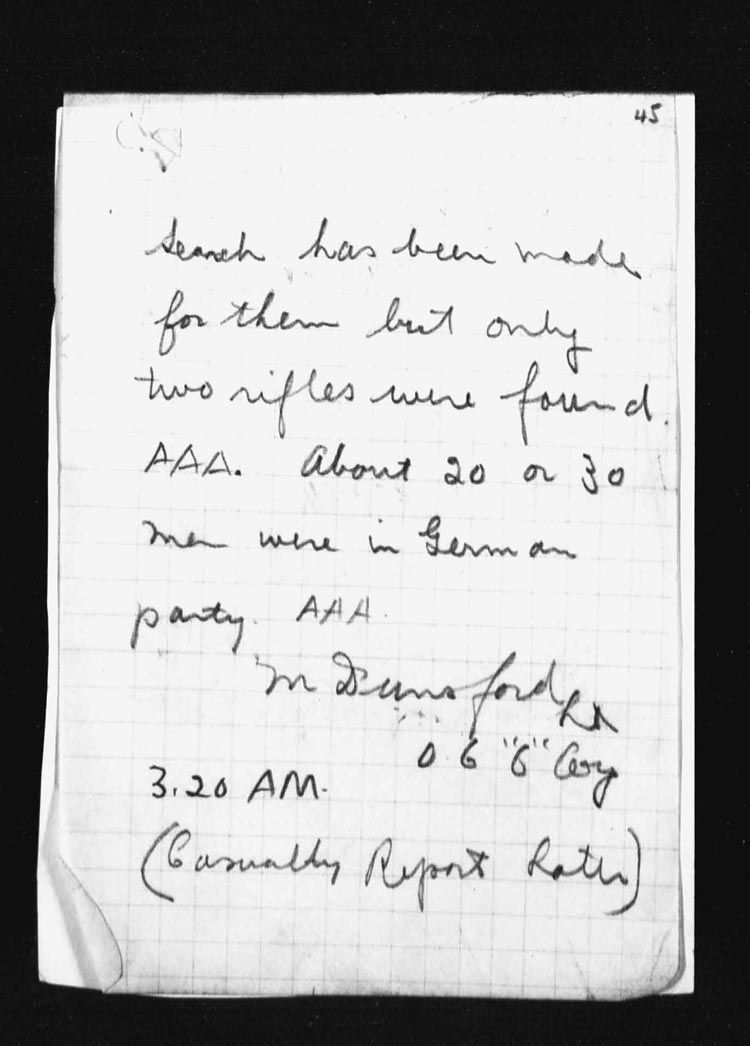 45
Search has been made
for them but only
two rifles were found.
AAA. About 20 or 30
men were in German
party. AAA.
M Dunsford Lt
O C "C" Coy
3.20 AM.
(Casualty Report Later)